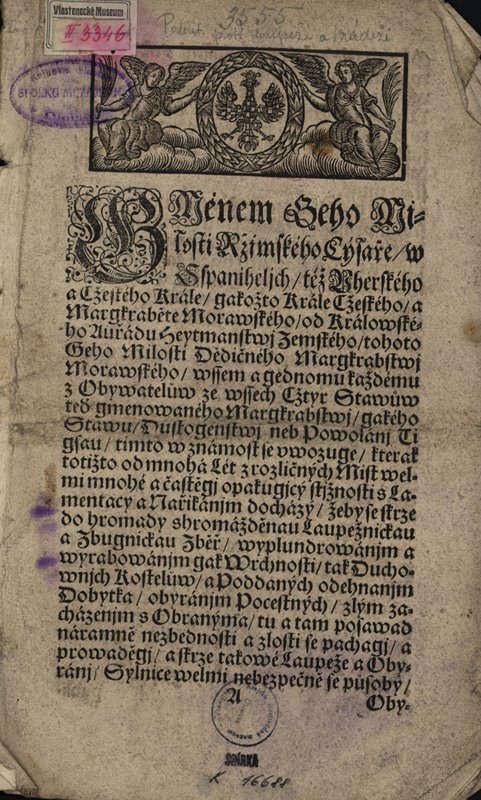 Vlastenecké Museum
# 3346
2555
Patent proti loupeži a krádeži
GMénem Geho Mi-
losti Ržimského Cýsaře/ w
Hyspanihelich/ též Vherského
a Cžeského Krále/ gakožto Krále Cžeského/ a
Margkraběte Morawského/ od Králowské-
ho Auřádu Heytmanstwj Zemského/ tohoto
Geho Milosti Dědičného Margkrabstwj
Morawského/ wssem a gednomu každému
z Obywatelůw ze wssech Cžtyr Stawůw
teď gmenowaného Margkrabstwj/ gakého
Stawu/ Dustogenstwj neb Powolánj Ti
gsau/ tjmto w známost se vwozuge/ kterak
totižto od mnohá Lét z rozličných Mist wel-
mi mnohé a častěgi opakugjcý stjžnosti s La-
mentacy a Nařjkánjm docházý/ žeby se skrze
do hromady shromážděnau Laupežnickau
a Zbugnickau Zběř/ wyplundrowánjm a
wyrabowánjm gak Wrchnosti/ tak Ducho-
wnjch Kostelůw/ a Poddaných odehnanjm
Dobytka/ obyránjm Pocestných/ zlým za-
cházenjm s Obranýma/ tu a tam posawad
náramně nezbednosti a zlosti se pachagj/ a
prowaděgj/ a skrze takowé Laupeže a Oby-
ránj/ Sylnice welmi nebezpečně se působý/
A
Oby-
SBÍRKA
K 16688